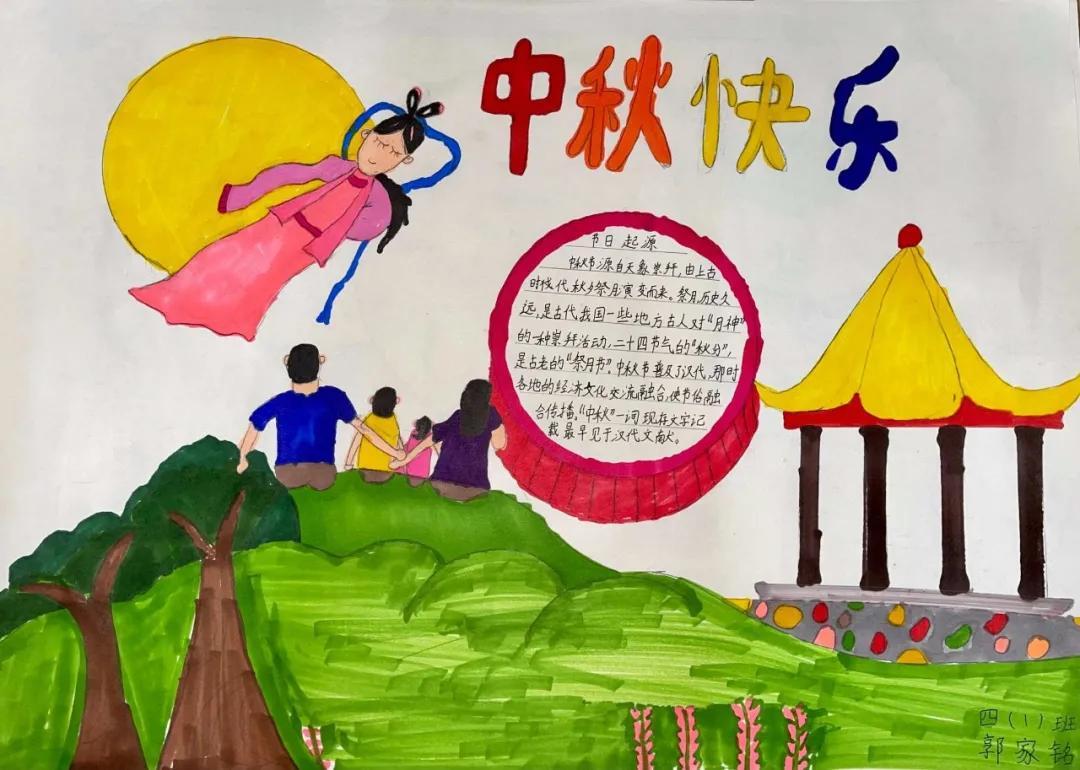 中秋快乐
节日起源
中秋节源自天象崇拜，由上古
时代秋夕祭月演变而来。祭月，历史久
远，是古代我国一些地方古人对“月神”
的一种崇拜活动，二十四节气的“秋分”，
是古老的“祭月节”。中秋节普及于汉代，那时
各地的经济文化交流融合，使节俗融
合传播。“中秋”一词现存文字记
载最早见于汉代文献。
四（1）班
郭家铭